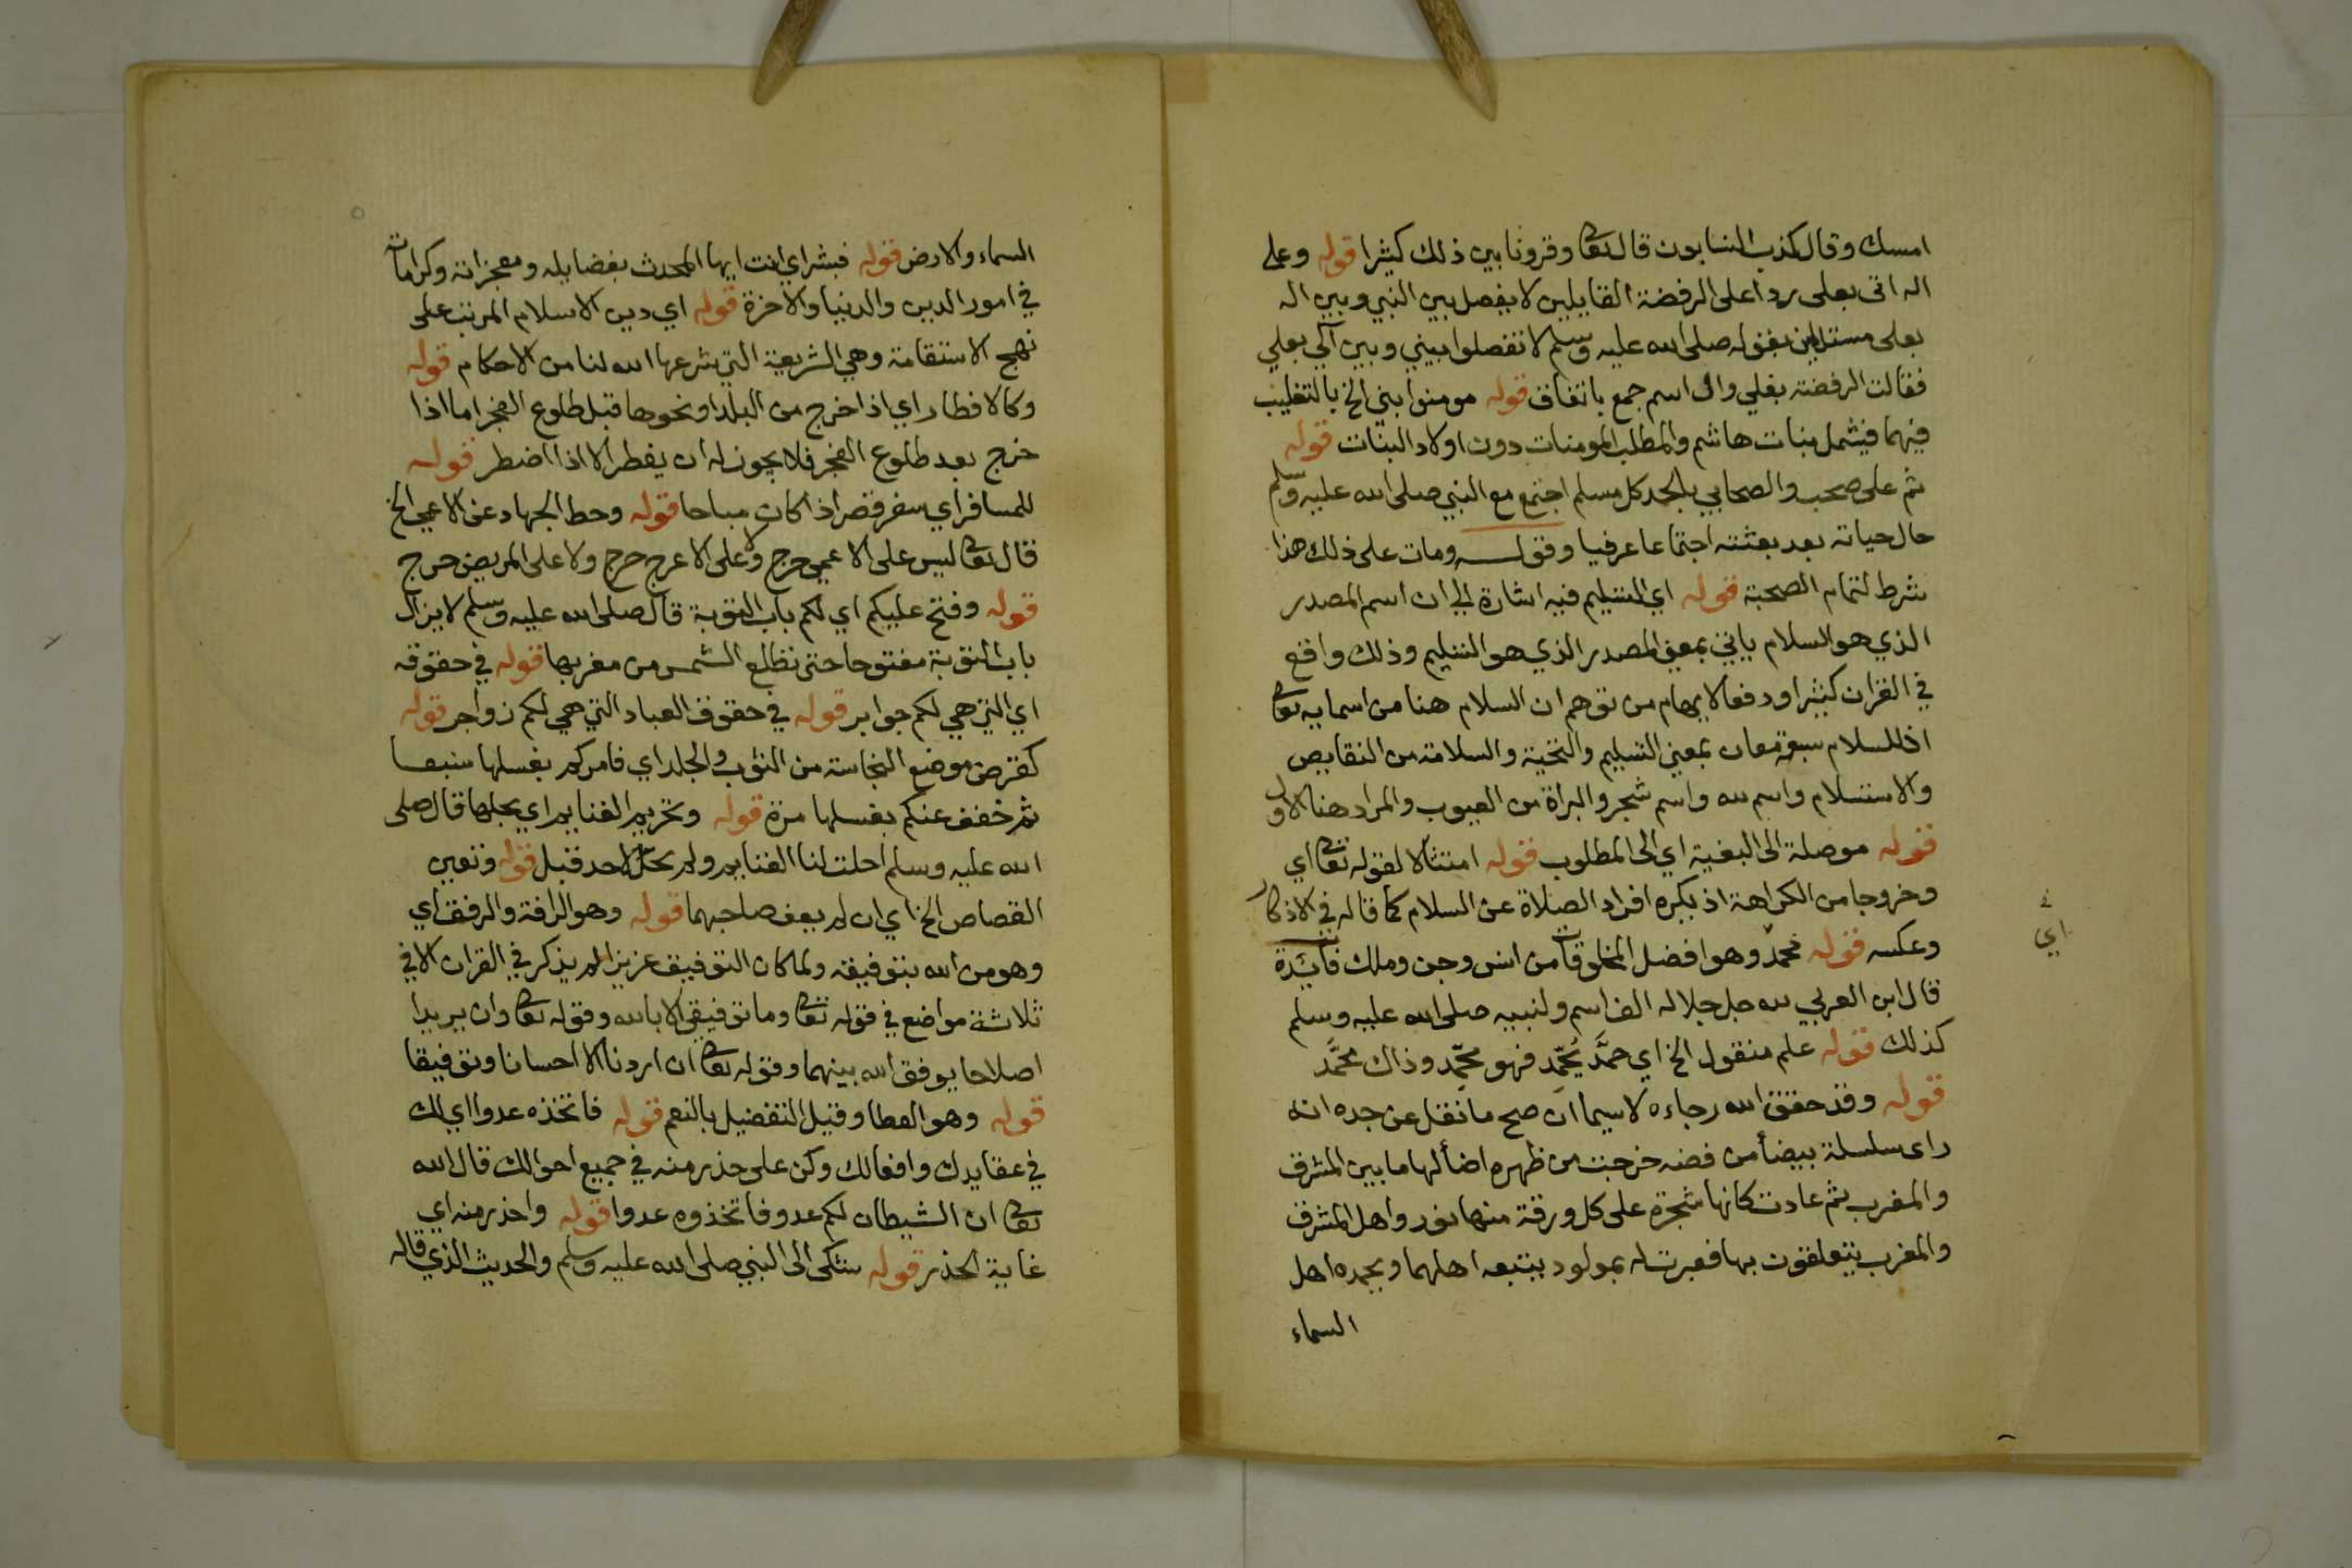 امسك وقال كذب النسابون قال تعالى وقرونا بين ذلك كثيرا قوله وعلى
اله اتى بعلى ردا على الرفضة القايلين لا يفصل بين النبي وبين اله
بعلى مستدلين بقوله صلى الله عليه وسلم لا تفصلوا بيني وبين آلي بعلي
فقالت الرفضة بعلي وال اسم جمع باتفاق قوله مومنوا بني الخ بالتغليب
فيهما فيشمل بنات هاشم والمطلب المومنات دون اولاد البنات قوله
ثم على صحب والصحابي بالحد كل مسلم اجتمع مع النبي صلى الله عليه وسلم
حال حياته بعد بعثته اجتماعا عرفيا وقوله ومات على ذلك هذا
شرط لتمام الصحبة قوله اي التسليم فيه اشارة الي ان اسم المصدر
الذي هو السلام ياتي بمعنى المصدر الذي هو التسليم وذلك واقع
في القران كثيرا ودفعا لايهام من توهم ان السلام هنا من اسمايه تعالى
اذ للسلام سبعة معان بمعنى التسليم والتحية والسلامة من النقايص
والاستسلام واسم لله واسم شجر والبراة من العيوب والمراد هنا الاول
قوله موصلة الى البغية اي الى المطلوب قوله امتثالا لقوله تعالى اي
وخروجا من الكراهة اذ يكره افراد الصلاة عن السلام كما قاله في الاذكار
وعكسه قوله محمد وهو افضل المخلوقات من انس وجن وملك فايدة
قال ابن العربي لله جل جلاله الف اسم ولنبيه صلى الله عليه وسلم
كذلك قوله علم منقول الخ اي حمَّد يُحَمِّد فهو محمِّد وذاك محمَّد
قوله وقد حقق الله رجاءه لا سيما ان صح ما نقل عن جده انه
راى سلسلة بيضأ من فضه خرجت من ظهره اضأ لها ما بين المشرق
والمغرب ثم عادت كانها شجرة على كل ورقة منها نور واهل المشرق
والمغرب يتعلقون بها فعبرت له بمولود يتبعه اهلهما ويحمده اهل
السماء
اي
السماء والارض قوله فبشراي انت ايها المحدث بفضايله ومعجزاته وكراماته
في امور الدين والدنيا والاخرة قوله اي دين الاسلام المرتب على
نهج الاستقامة وهي الشريعة التي شرعها الله لنا من الاحكام قوله
وكالافطار اي اذا خرج من البلد او نحوها قبل طلوع الفجر اما اذا
خرج بعد طلوع الفجر فلا يجوز له ان يفطر الا اذا اضطر قوله
للمسافر اي سفر قصر اذا كان مباحا قوله وحط الجهاد عن الاعمي الخ
قال تعالى ليس على الاعمي حرج ولا على الاعرج حرج ولا على المريض حرج
قوله وفتح عليكم اي لكم باب التوبة قال صلى الله عليه وسلم لا يزال
باب التوبة مفتوحا حتى تطلع الشمس من مغربها قوله في حقوقه
اي التي هي لكم جوابر قوله في حقوق العباد التي هي لكم زواجر قوله
كقرض موضع النجاسة من الثوب والجلد اي فامركم بغسلها سبعا
ثم خفف عنكم بغسلها مرة قوله وتحريم الغنايم اي بحلها قال صلى
الله عليه وسلم احلت لنا الغنايم ولم تحل لاحد قبل قوله وتعين
القصاص الخ اي ان لم يعف صاحبهما قوله وهو الرافة والرفق اي
وهو من الله بتوفيقه ولما كان التوفيق عزيزا لم يذكر في القران الا في
ثلاثة مواضع في قوله تعالى وما توفيقي الا بالله وقوله تعالى وان يريدا
اصلاحا يوفق الله بينهما وقوله تعالى ان اردنا الا احسانا وتوفيقا
قوله وهو العطا وقيل التفضيل بالنعم قوله فاتخذه عدوا اي لك
في عقايدك وافعالك وكن على حذر منه في جميع احوالك قال الله
تعالى ان الشيطان لكم عدو فاتخذوه عدوا قوله واحذر منه اي
غاية الحذر قوله شكى الى النبي صلى الله عليه وسلم والحديث الذي قاله